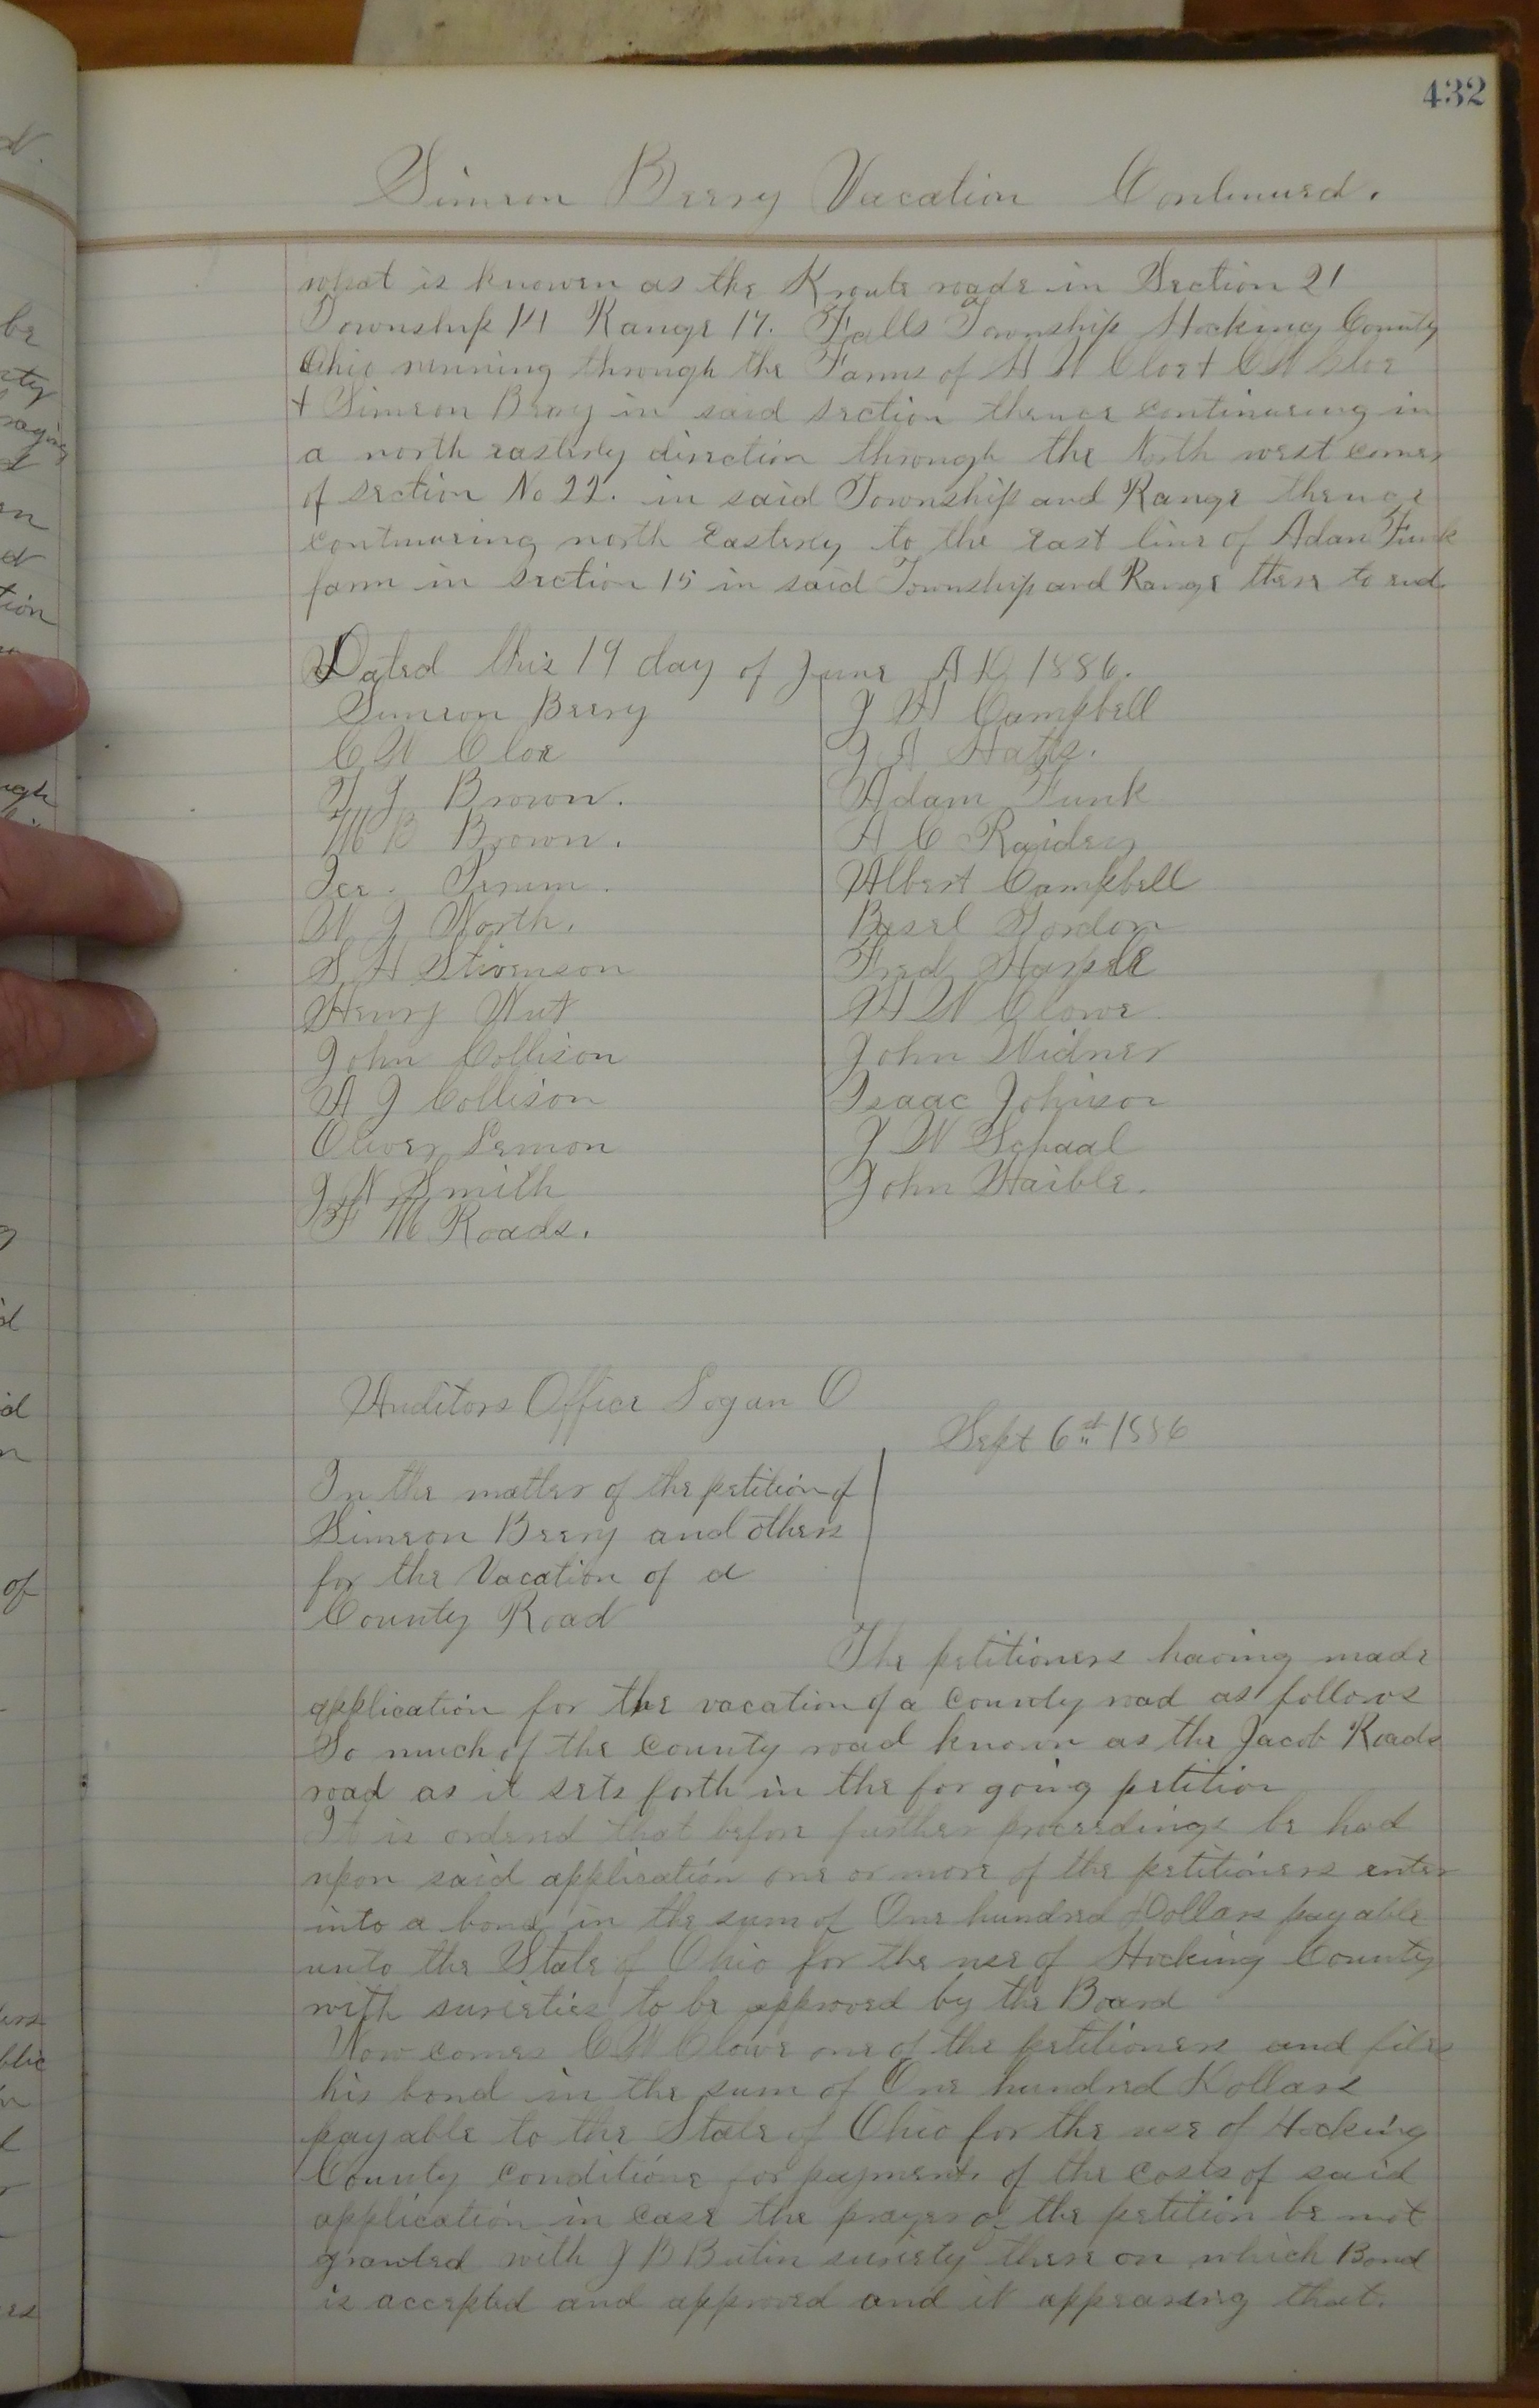 432
Simeon Berry Vacation Continued.
what isknowen as the Kroute roade in Section 21
Township 14 Range 17. Falls Township Hocking County
Ohio running through the Farms of H W Cloe + C W Cloe
+ Simeon Brey in said section thence continueing in
a north easterly direction through the North west corner
of section No 22. in said Township and Range thence
continueing north Easterly to the East line of Adam Funk
farm in section 15 in said Township and Range there to end.
Dated this 19 day of June A D 1886.
Simeon Berry
C W Cloe
T J Brown.
M B Brown.
Jer.
W J North.
S H Stivenson
Henry Nut
John Collison
A J Collison
Oliver Lemon
J N Smith
F M Roads.
J H Campbell
J A Hatts.
Adam Funk
A C Raidey
Albert Campbell
Basel Gordon
Fred Harpell
H W Clowe.
John Widner
Isaac Johnson
J W Schaal
John Haible.
Auditors Office Logan O
Sept 6th 1886
In the matter of the petition of
Simeon Berry and others
for the Vacation of a
County Road
The petitioners having made
application for the vacation of a County road as follows
So much of the County road known as the Jacob Roads
road as it sets forth in the for going petition
It is ordered that before further proceedings be had
upon said application one or more of the petitioners enter
into a bond in the sum of One hundred Dollars payable
unto the State of Ohio for the use of Hocking County
with sureties to be approved by the Board
Now comes C W Clowe one of the petitioners and files
his bond in the sum of One hundred Dollars
payable to the State of Ohio for the use of Hocking
County conditione for payment of the costs of said
application in case the prayer of the petition be not
granted with J B Butin suriety there on which Bond
is accepted and approved and it appearing that.